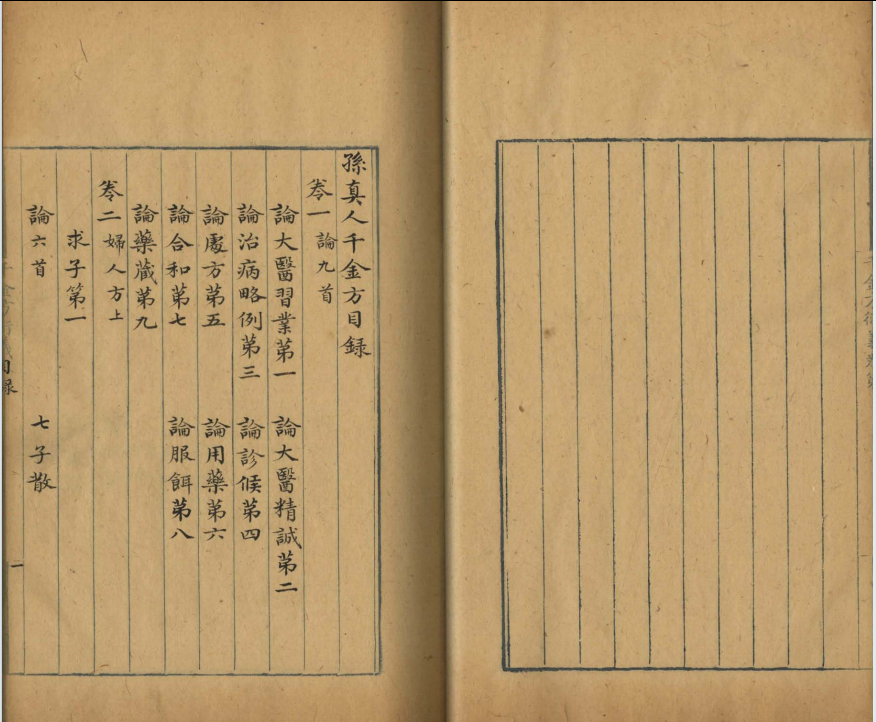 孫真人千金方目録
卷一 論九首
論大醫習業第一 論大醫精誠第二
論治病略例第三 論診候第四
論處方第五 論用藥第六
論合和第七 論服餌第八
論藥藏第九
卷二 婦人方上
求子第一
論六首 七子散
目録
一